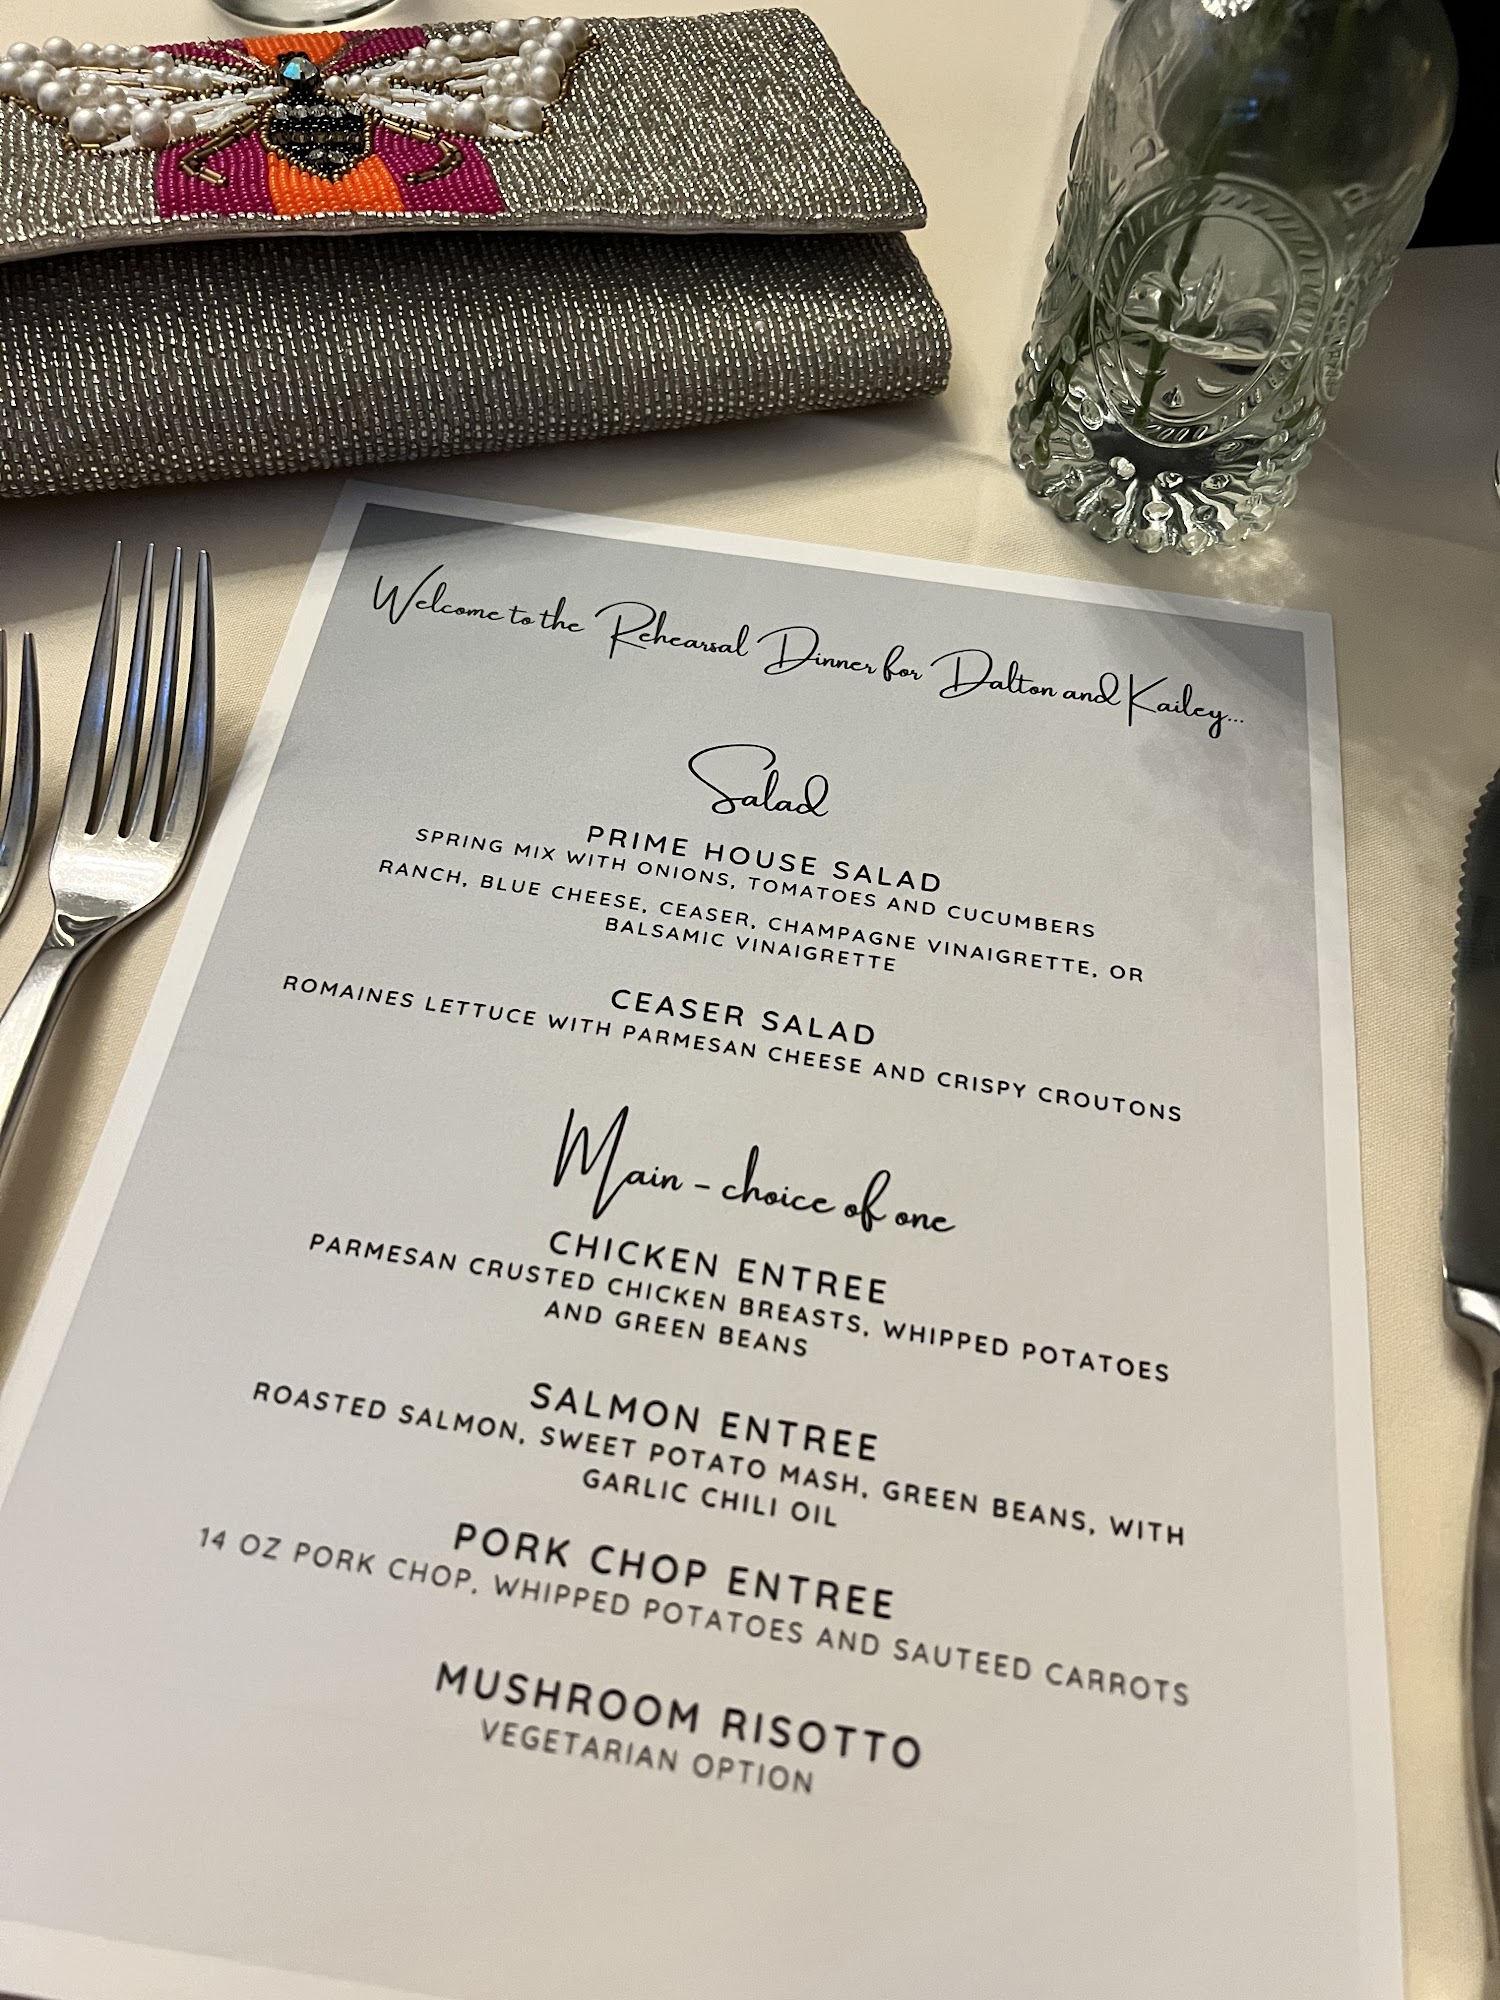 Welcome to the Rehearsal Dinner for Dalton and Kailey...
Salad
PRIME HOUSE SALAD
SPRING MIX WITH ONIONS, TOMATOES AND CUCUMBERS
RANCH, BLUE CHEESE, CEASER, CHAMPAGNE VINAIGRETTE, OR
BALSAMIC VINAIGRETTE
CEASER SALAD
ROMAINES LETTUCE WITH PARMESAN CHEESE AND CRISPY CROUTONS
Main - choice of one
CHICKEN ENTREE
PARMESAN CRUSTED CHICKEN BREASTS, WHIPPED POTATOES
AND GREEN BEANS
SALMON ENTREE
ROASTED SALMON, SWEET POTATO MASH, GREEN BEANS, WITH
GARLIC CHILI OIL
PORK CHOP ENTREE
14 OZ PORK CHOP, WHIPPED POTATOES AND SAUTEED CARROTS
MUSHROOM RISOTTO
VEGETARIAN OPTION